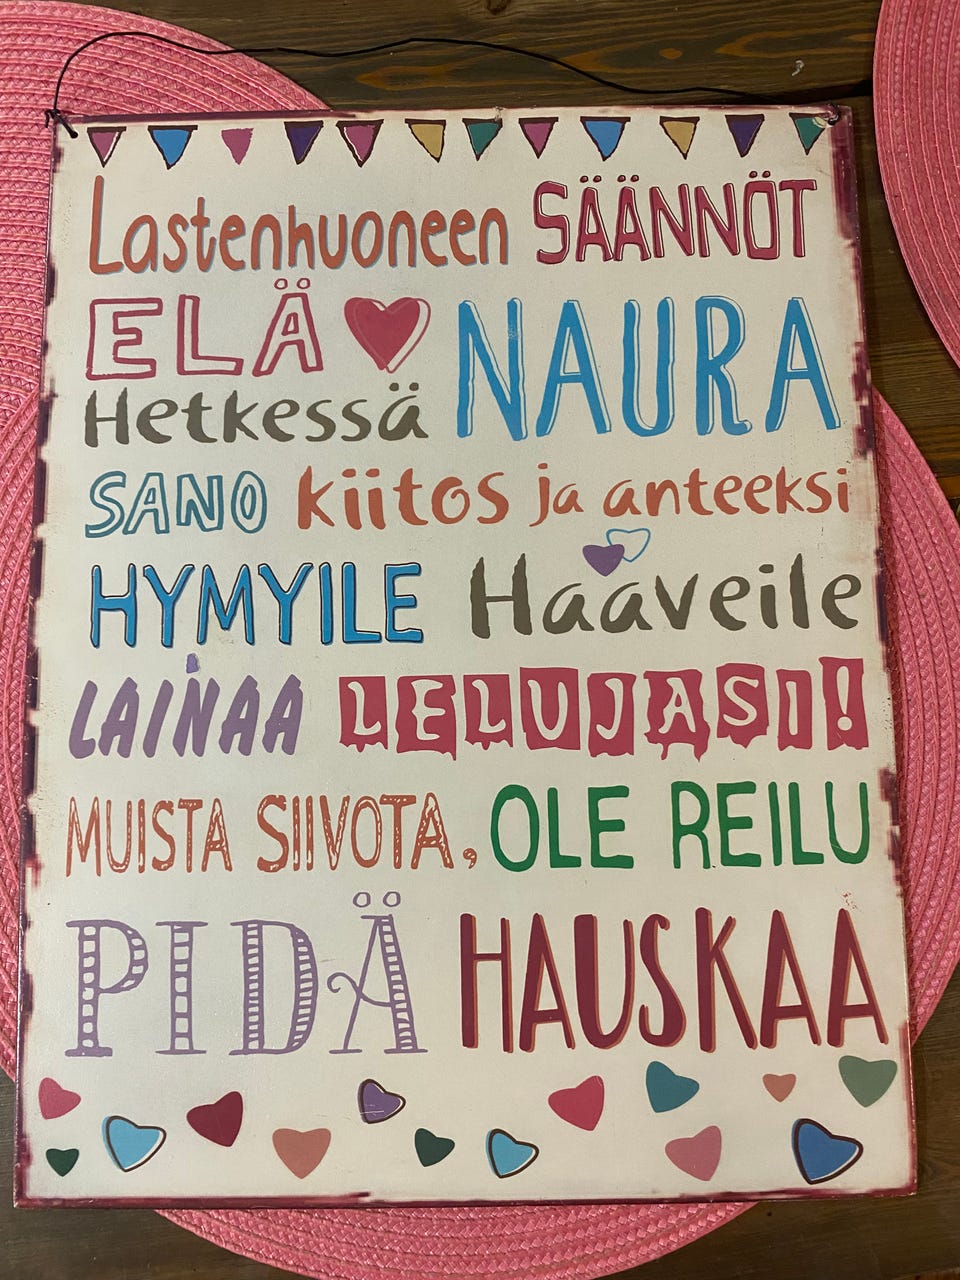 Lastenhuoneen SÄÄNNÖT
ELÄ NAURA
Hetkessä
SANO kiitos ja anteeksi
HYMYILE Haaveile
LAINAA LELUJASI!
MUISTA SIIVOTA, OLE REILU
PIDÄ HAUSKAA